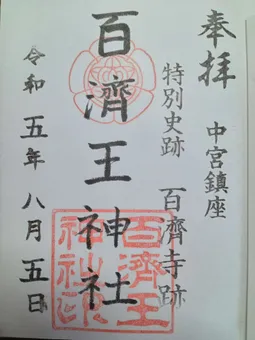 奉拝 中宮鎮座
特別史跡 百濟寺跡
百濟王神社
令和五年八月五日
百濟王
神社印